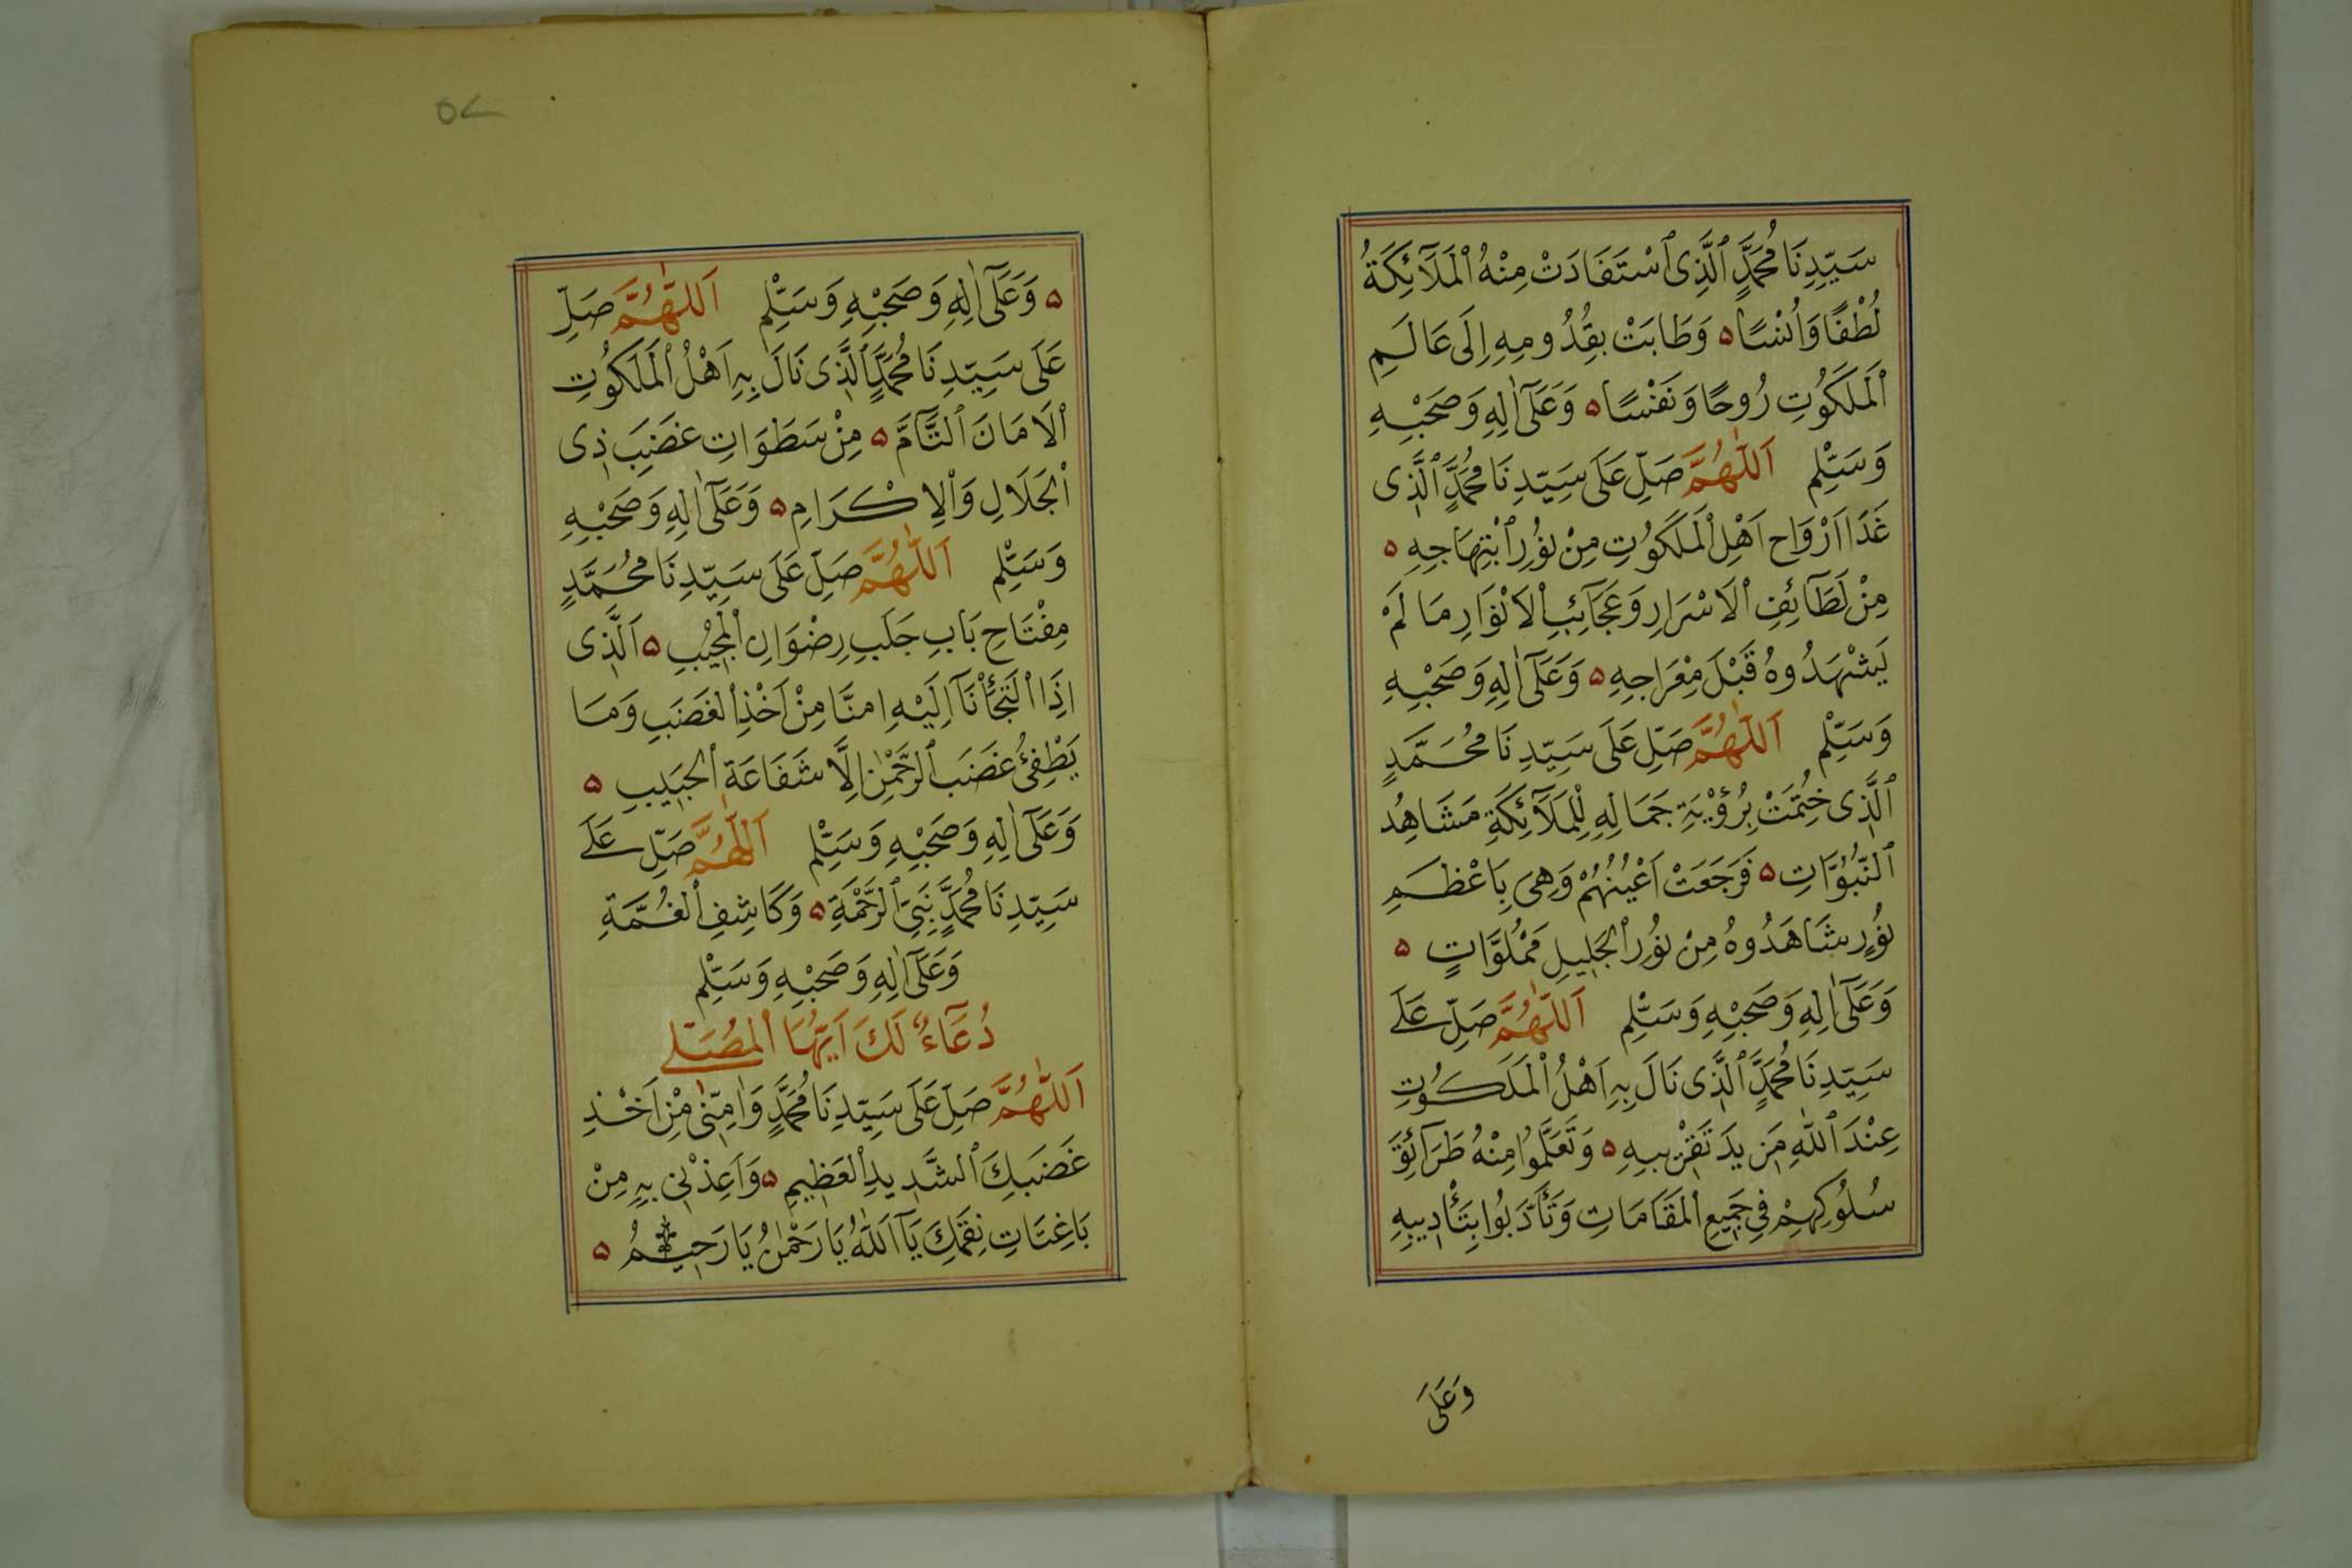 سَيِّدِنَا مُحَمَّدٍ ٱلَّذِى ٱسْتَفَادَتْ مِنْهُ ٱلْمَلَآئِكَةُ
لُطْفًا وَاُنْسًا ۵ وَطَابَتْ بِقُدُومِهِ اِلَى عَالَمِ
ٱلْمَلَكُوتِ رُوحًا وَنَفْسًا ۵ وَعَلَىٓ اٰلِهِ وَصَحْبِهِ
وَسَلِّمْ اَللّٰهُمَّ صَلِّ عَلَى سَيِّدِنَا مُحَمَّدٍ ٱلَّذِى
غَذَا اَرْوَاحَ اَهْلِ ٱلْمَلَكُوتِ مِنْ نُورِ ٱبْتِهَاجِهِ ۵
مِنْ لَطَآئِفِ ٱلاَسْرَارِ وَعَجَآئِبِ ٱلاَنْوَارِ مَا لَمْ
يَشْهَدُوهُ قَبْلَ مِعْرَاجِهِ ۵ وَعَلَىٓ اٰلِهِ وَصَحْبِهِ
وَسَلِّمْ اَللّٰهُمَّ صَلِّ عَلَى سَيِّدِنَا مُحَمَّدٍ
ٱلَّذِى خُتِمَتْ بِرُؤْيَةِ جَمَالِهِ لِلْمَلَآئِكَةِ مَشَاهِدُ
ٱلنُّبُوَّاتِ ۵ فَرَجَعَتْ اَعْيُنُهُمْ وَهِىَ بِاَعْظَمِ
نُورٍ شَاهَدُوهُ مِنْ نُورِ ٱلْجَلِيلِ مَمْلُوَّاتٍ ۵
وَعَلَىٓ اٰلِهِ وَصَحْبِهِ وَسَلِّمْ اَللّٰهُمَّ صَلِّ عَلَى
سَيِّدِنَا مُحَمَّدٍ ٱلَّذِى نَالَ بِهِ اَهْلُ ٱلْمَلَكُوتِ
عِنْدَ ٱللّٰهِ مَزِيدَ تَقْرِيبِهِ ۵ وَتَعَلَّمُوا مِنْهُ طَرَآئِقَ
سُلُوكِهِمْ فِى جَمِيعِ ٱلْمَقَامَاتِ وَتَأَدَّبُوا بِتَأْدِيبِهِ
وَعَلَى
۵۷
۵ وَعَلَىٓ اٰلِهِ وَصَحْبِهِ وَسَلِّمْ اَللّٰهُمَّ صَلِّ
عَلَى سَيِّدِنَا مُحَمَّدٍ ٱلَّذِى نَالَ بِهِ اَهْلُ ٱلْمَلَكُوتِ
ٱلاَمَانَ ٱلتَّآمَّ ۵ مِنْ سَطَوَاتِ غَضَبِ ذِى
ٱلْجَلَالِ وَٱلْاِكْرَامِ ۵ وَعَلَىٓ اٰلِهِ وَصَحْبِهِ
وَسَلِّمْ اَللّٰهُمَّ صَلِّ عَلَى سَيِّدِنَا مُحَمَّدٍ
مِفْتَاحِ بَابِ جَلَبِ رِضْوَانِ ٱلْمُجِيْبِ ۵ اَلَّذِى
اِذَا ٱلْتَجَأْنَآ اِلَيْهِ اٰمنَّا مِنْ اَخْذِ ٱلْغَضَبِ وَمَا
يَطْفِئُ غَضَبَ ٱلرَّحْمٰنِ اِلَّا شَفَاعَةِ ٱلْحَبِيبِ ۵
وَعَلَىٓ اٰلِهِ وَصَحْبِهِ وَسَلِّمْ اَللّٰهُمَّ صَلِّ عَلَى
سَيِّدِنَا مُحَمَّدٍ نَبِىِّ ٱلرَّحْمَةِ ۵ وَكَاشِفِ ٱلْغُمَّةِ
وَعَلَىٓ اٰلِهِ وَصَحْبِهِ وَسَلِّمْ
دُعَآءٌ لَكَ اَيُّهَا ٱلْمُصَلِّى
اَللّٰهُمَّ صَلِّ عَلَى سَيِّدِنَا مُحَمَّدٍ وَاٰمِنِّى مِنْ اَخْذِ
غَضَبِكَ ٱلشَّدِيدِ ٱلْعَظِيمِ ۵ وَاَعِذْنِى بِهِ مِنْ
بَاغِتَاتِ نِقَمِكَ يَآ اَللّٰهُ يَا رَحْمٰنُ يَا رَحِيمُ ۵